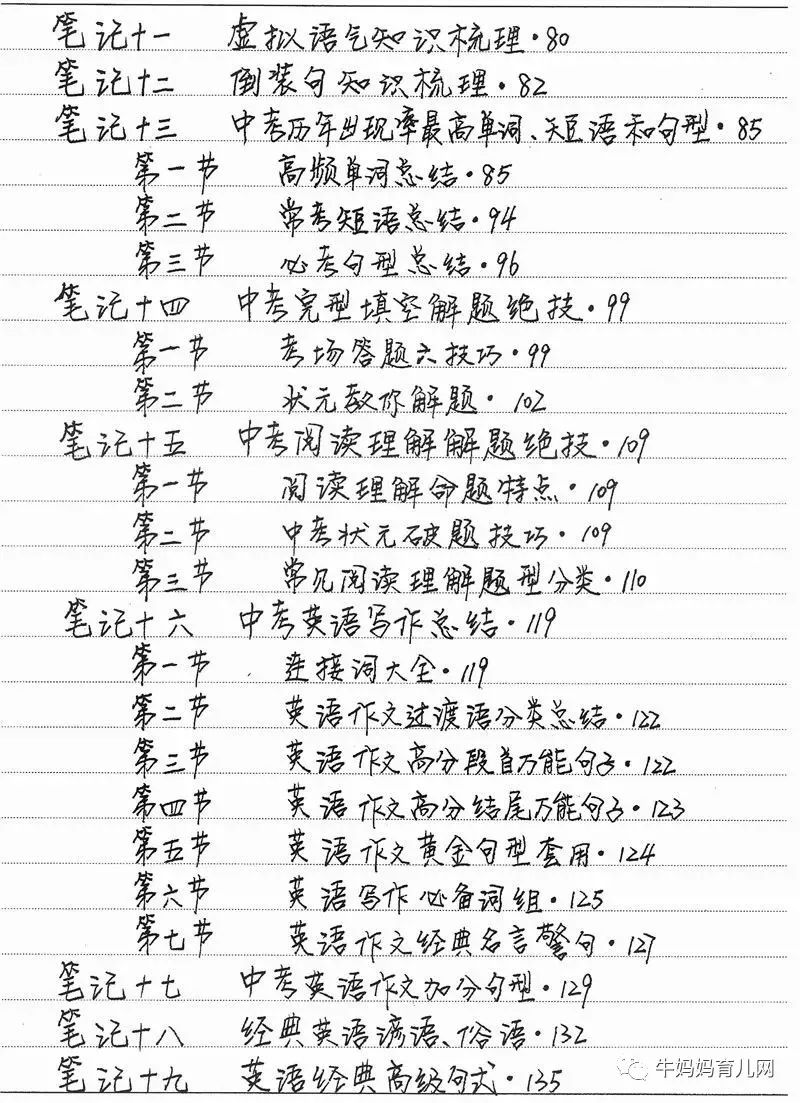 笔记十一 虚拟语气知识梳理·80
笔记十二 倒装句知识梳理·82
笔记十三 中考历年出现率最高单词、短语和句型·85
第一节 高频单词总结·85
第二节 常考短语总结·94
第三节 必考句型总结·96
笔记十四 中考完型填空解题绝技·99
第一节 考场答题六技巧·99
第二节 状元教你解题·102
笔记十五 中考阅读理解解题绝技·109
第一节 阅读理解命题特点·109
第二节 中考状元破题技巧·109
第三节 常见阅读理解题型分类·110
笔记十六 中考英语写作总结·119
第一节 连接词大全·119
第二节 英语作文过渡语分类总结·122
第三节 英语作文高分段首万能句子·122
第四节 英语作文高分结尾万能句子·123
第五节 英语作文黄金句型套用·124
第六节 英语写作必备词组·125
第七节 英语作文经典名言警句·127
笔记十七 中考英语作文加分句型·129
笔记十八 经典英语谚语、俗语·132
笔记十九 英语经典高级句式·135
牛妈妈育儿网